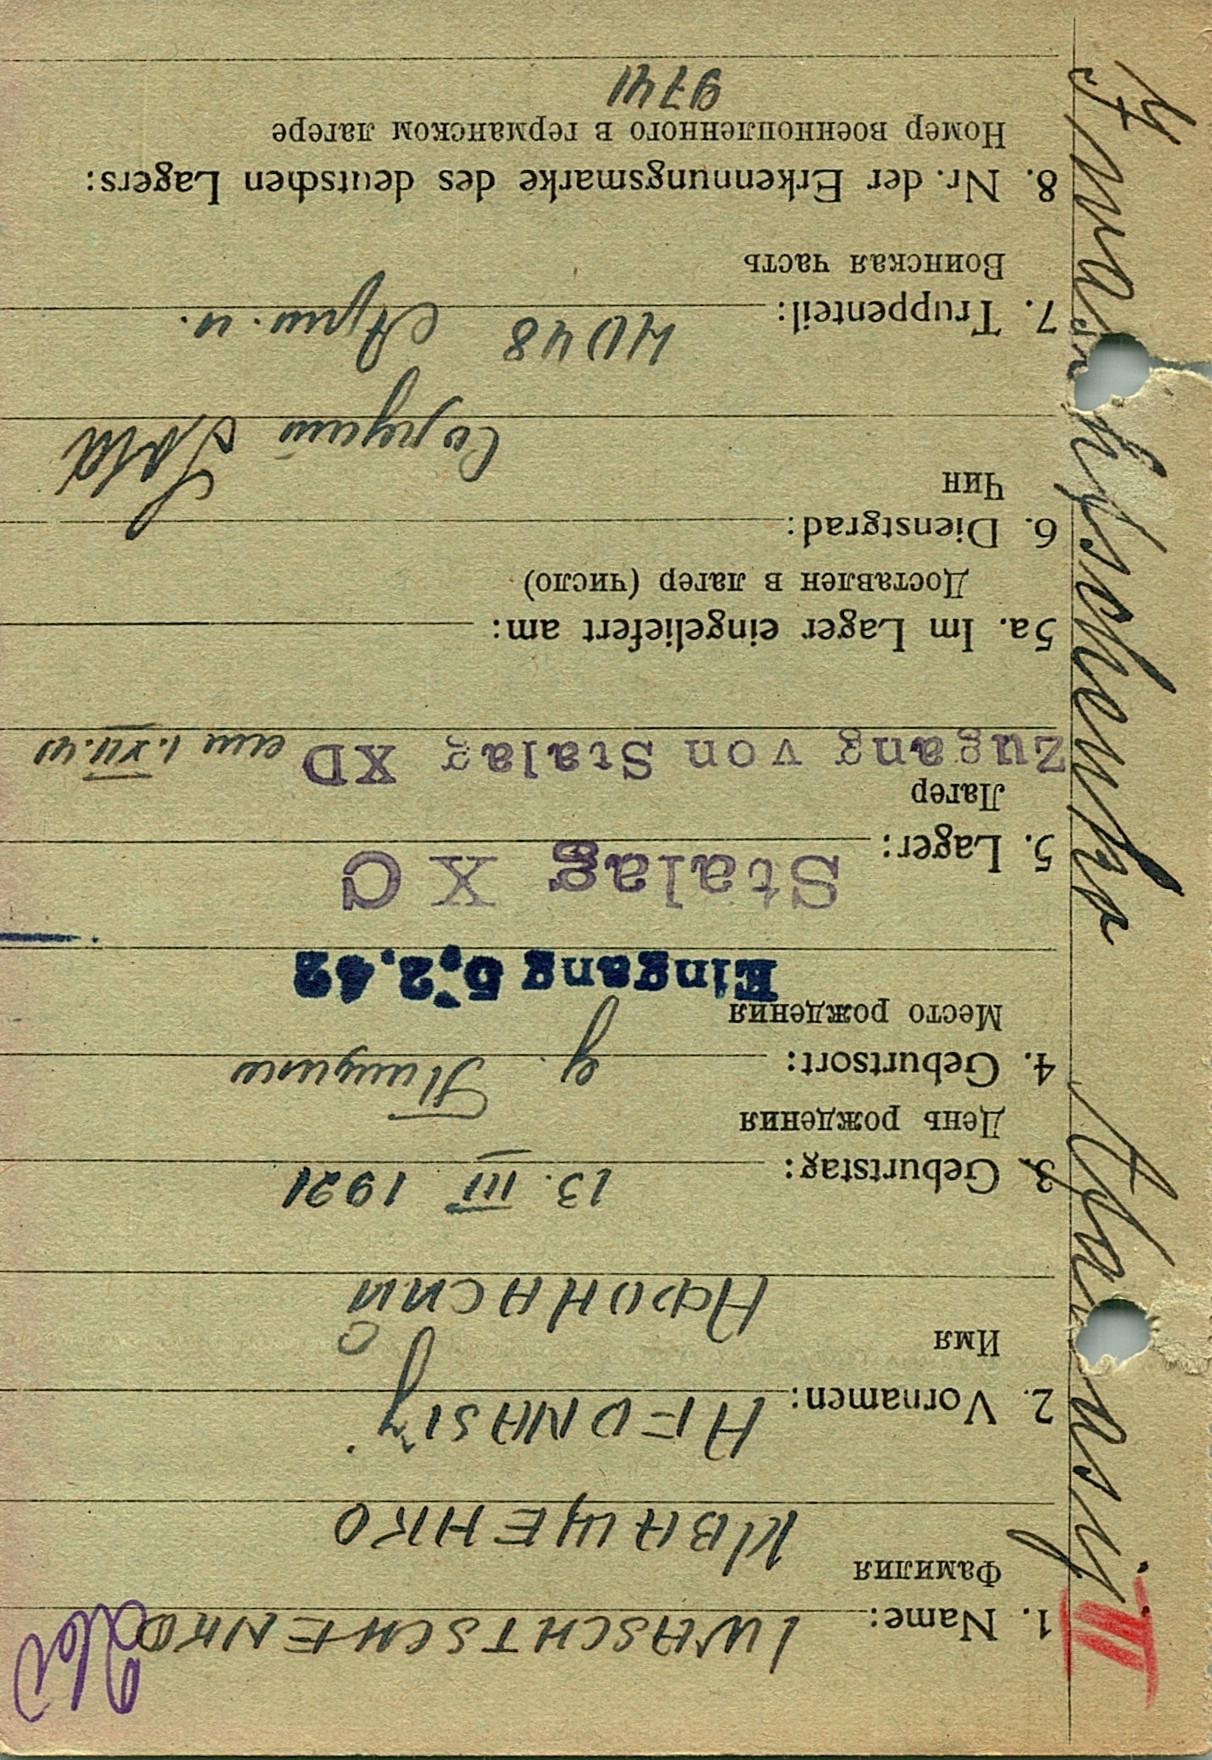 1. Name: IWASCHTSCHENKO
Фамилия
ИВАЩЕНКО
2. Vornamen: AFONASIJ
Имя
АФОНАСИЙ
3. Geburtstag: 13. III 1921
День рождения
4. Geburtsort: д.
Место рождения
Eingang 5.2.42
Stalag X C
5. Lager:
Лагер
Zugang von Stalag XD am 1.XII.41
5a. Im Lager eingeliefert am:
Доставлен в лагер (число)
6. Dienstgrad:
Чин
7. Truppenteil:
Воинская часть
8. Nr. der Erkennungsmarke des deutschen Lagers:
Номер военнопленного в германском лагере
9741
III
Afanasij Iwaschtschenko